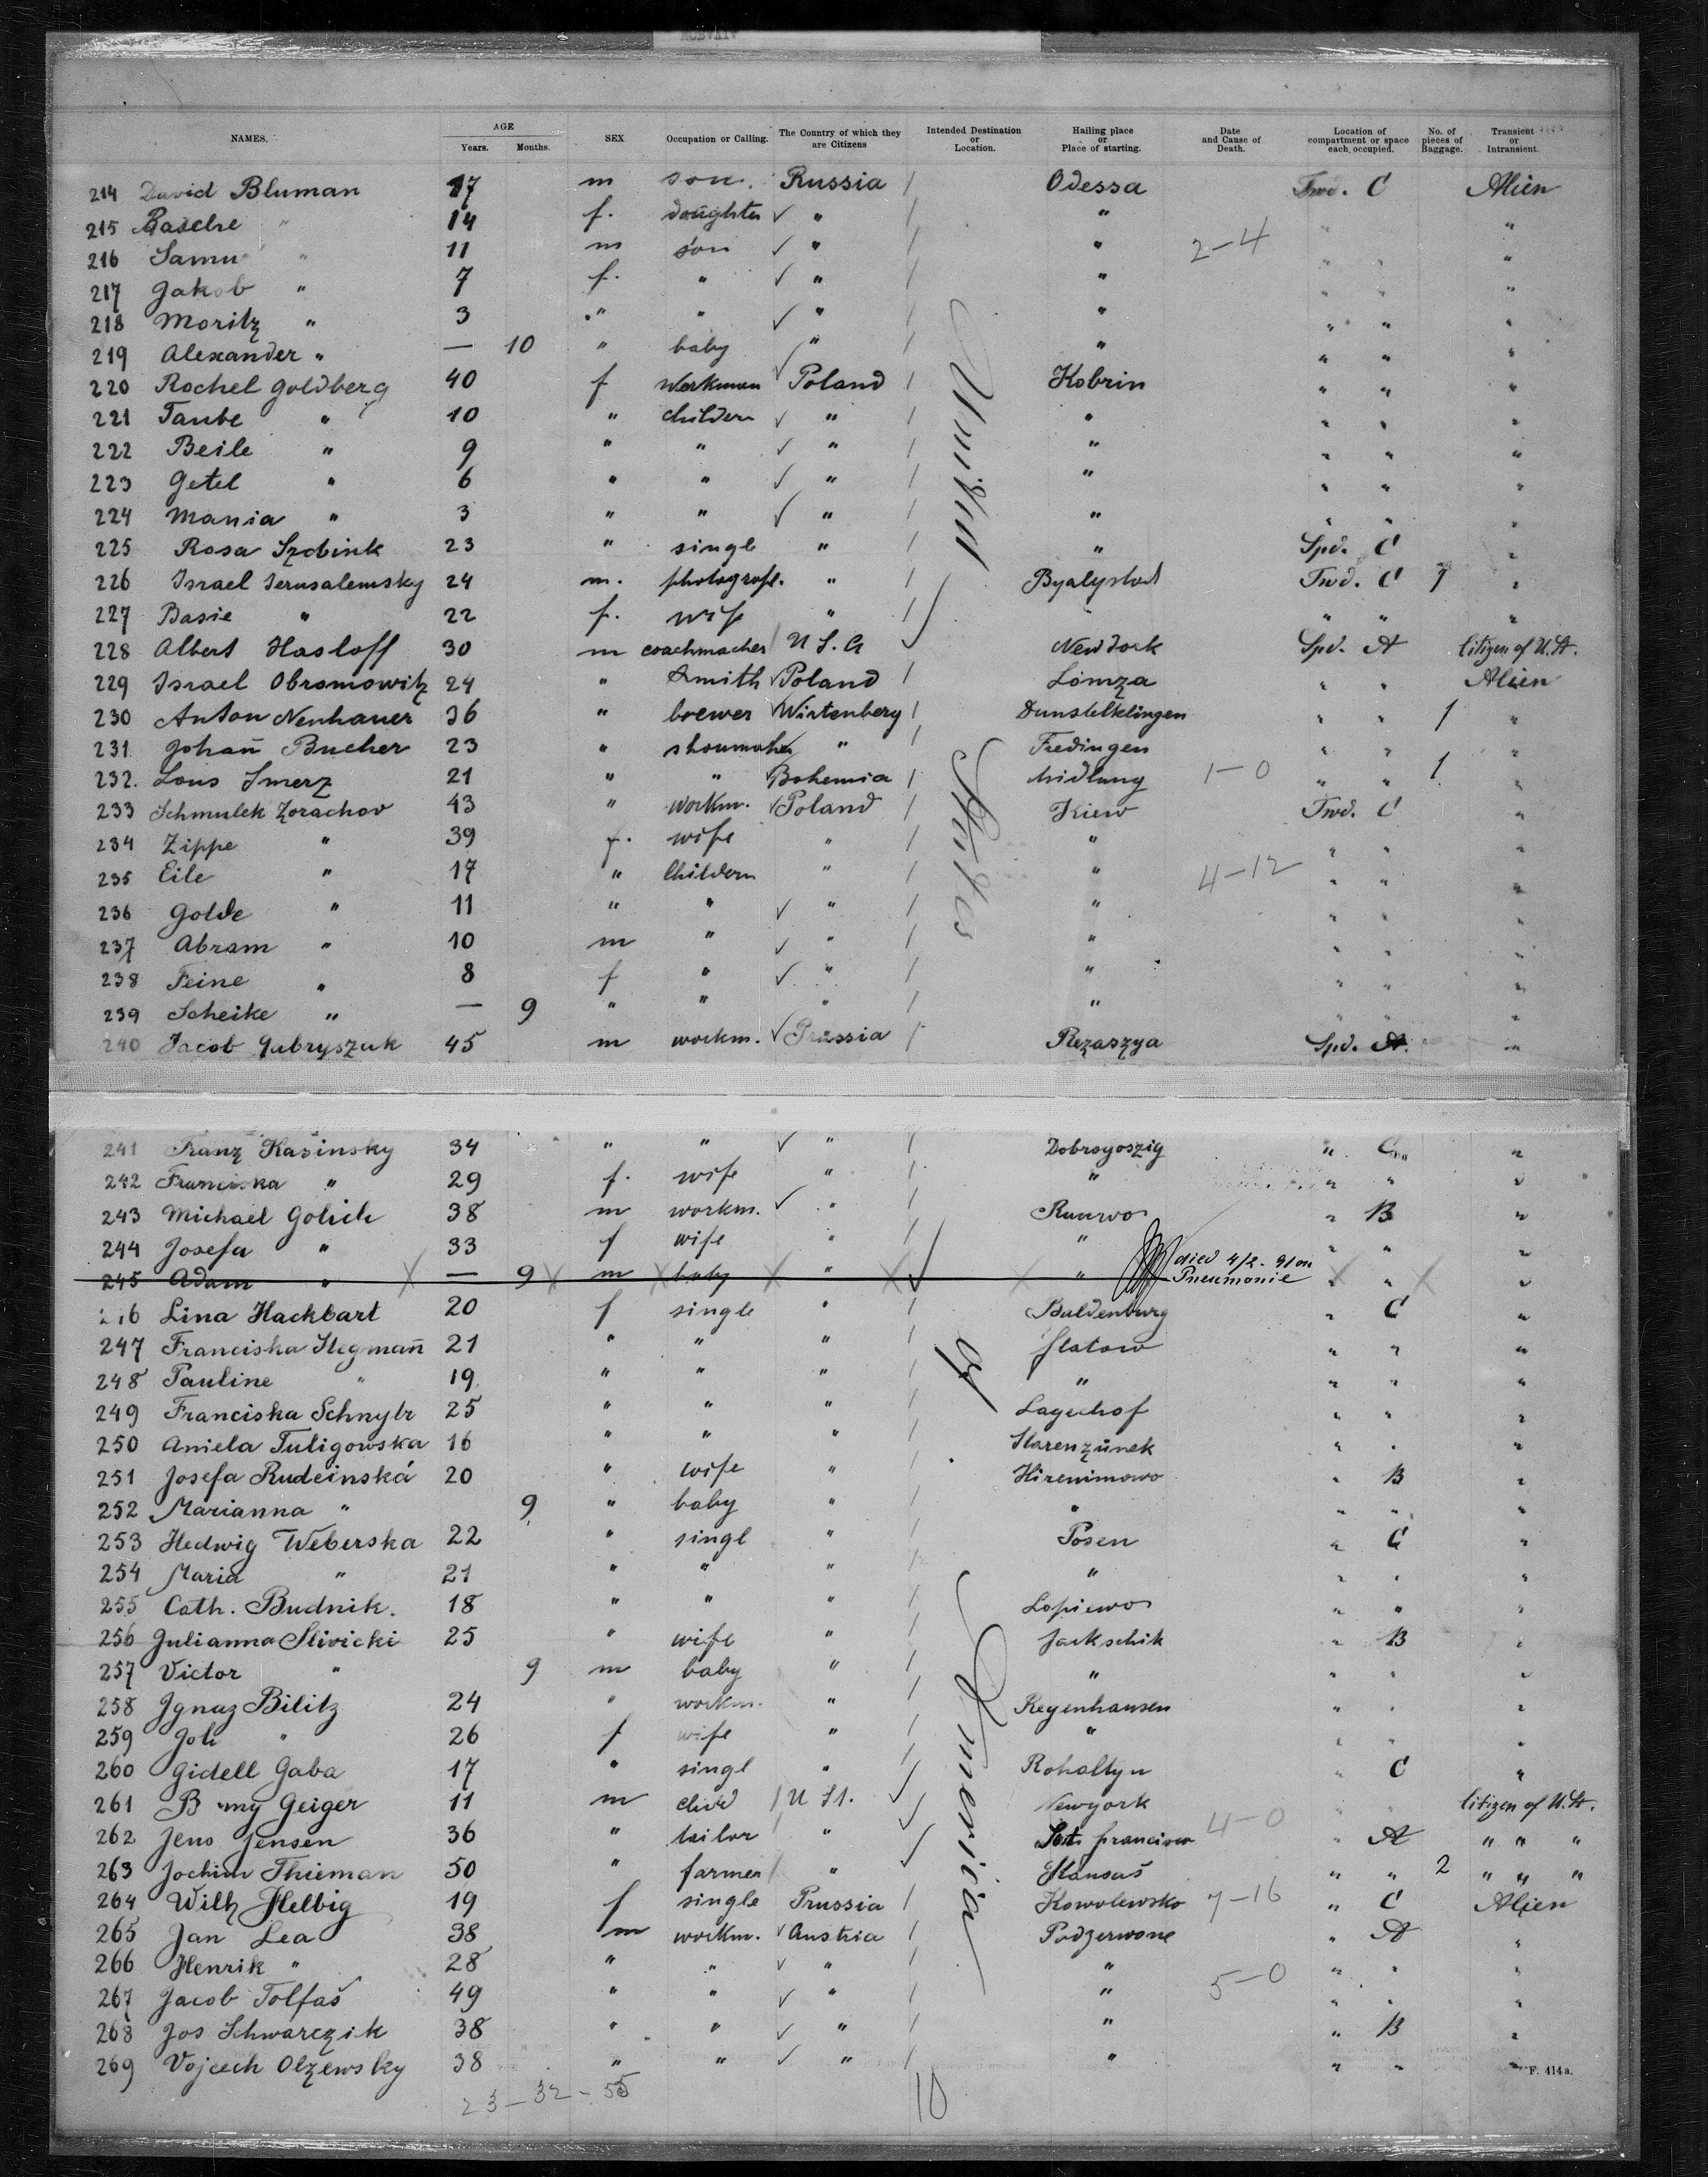 NAMES. AGE Years. Months. SEX Occupation or Calling. The Country of which they are Citizens Intended Destination or Location. Hailing place or Place of starting. Date and Cause of Death. Location of compartment or space each occupied. No. of pieces of Baggage. Transient or Intransient.
214 David Bluman 17 m son. Russia / Odessa Fwd. C Alien
215 Rasche " 14 f. doughter ✓ " / " "
216 Samu " 11 m son ✓ " / " 2-4 " "
217 Jakob " 7 f. " ✓ " / " " " "
218 Moritz " 3 " " ✓ " / " " " "
219 Alexander " — 10 " baby ✓ " / " " " "
220 Rochel Goldberg 40 f workman Poland / Kobrin " " "
221 Taube " 10 " childern ✓ " / " " " "
222 Beile " 9 " " ✓ " / " " " "
223 Getel " 6 " " ✓ " / " " " "
224 Mania " 3 " " ✓ " / " " " "
225 Rosa Szdink 23 " single " / " Spd. C "
226 Israel Jerusalemsky 24 m. photogroph. " / Byalystock Fwd. C 1 "
227 Basie " 22 f. wife " / " " " "
228 Albert Hasloff 30 m coachmacher / U S. A ✓ New York Spd. A Citizen of U.St.
229 Israel Obromowitz 24 " Smith ✓ Poland / Lomza " " Alien
230 Anton Nenhauer 36 " brewer ✓ Wirtenberg / Dunstelklingen " " 1 "
231 Johañ Bucher 23 " shoumaher ✓ " / Fredingen " " "
232. Lous Smerz 21 " " ✓ Bohemia / Midlung 1-0 " " 1 "
233 Schmulek Zorachov 43 " workm. ✓ Poland / Kiew Fwd. C "
234 Zippe " 39 f. wife " / " " " "
235 Eile " 17 " Childern " / " 4-12 " " "
236 Golde " 11 " " ✓ " / " " " "
237 Abram " 10 m " ✓ " / " " " "
238 Feine " 8 f " ✓ " / " " " "
239 Scheike " — 9 " " " / " " " "
240 Jacob Gubryszak 45 m workm. ✓ Prussia / Rezaszya Spd. A. "
241 Franz Kasinsky 34 " " ✓ " / Dobrogoszig " C "
242 Franciska " 29 f. wife " / " " " "
243 Michael Golich 38 m workm. ✓ " / Ruurwo " B "
244 Josefa " 33 f wife " / " " " "
245 Adam " — 9 m baby " ✓ " died 4/2. 91 on Pneumonie " " "
246 Lina Hackbart 20 f single " / Baldenburg " C "
247 Franciska Stegmañ 21 " " " / Flatow " " "
248 Pauline " 19 " " " / " " " "
249 Franciska Schnybr 25 " " " / Lagechof " " "
250 Aniela Tuligowska 16 " " " / Starenzünek " " "
251 Josefa Rudeinská 20 " wife " / Hirenimowo " B "
252 Marianna " 9 " baby " / " " " "
253 Hedwig Weberska 22 " singl " / Posen " C "
254 Maria " 21 " " " / " " " "
255 Cath. Budnik. 18 " " " / Lopiewo " " "
256 Julianna Slivicki 25 " wife " / Jackschik " B "
257 Victor " 9 m baby " / " " " "
258 Jgnaz Bilitz 24 " workm. " / Regenhausen " " "
259 Joh " 26 f wife " / " " " "
260 Gidell Gaba 17 " singl " / Rohaltyn " C "
261 B my Geiger 11 m child / U St. ✓ Newyork " " Citizen of U.St.
262 Jens Jensen 36 " tailor / " ✓ Sat. francisco 4-0 " A " " "
263 Jochim Thieman 50 " farmer / " ✓ Kansas " " 2 " " "
264 Wilh Helbig 19 f single Prussia / Kowolewsko 7-16 " C Alien
265 Jan Lea 38 m workm. ✓ Austria / Podzerwone " A "
266 Henrik " 28 " " ✓ " / " " " "
267 Jacob Tolfaš 49 " " ✓ " / " 5-0 " " "
268 Jos Schwarczik 38 " " ✓ " / " " B "
269 Vojcech Olzewsky 38 " " ✓ " / " " " "
United States of America
F. 414a.
23-32-55
10